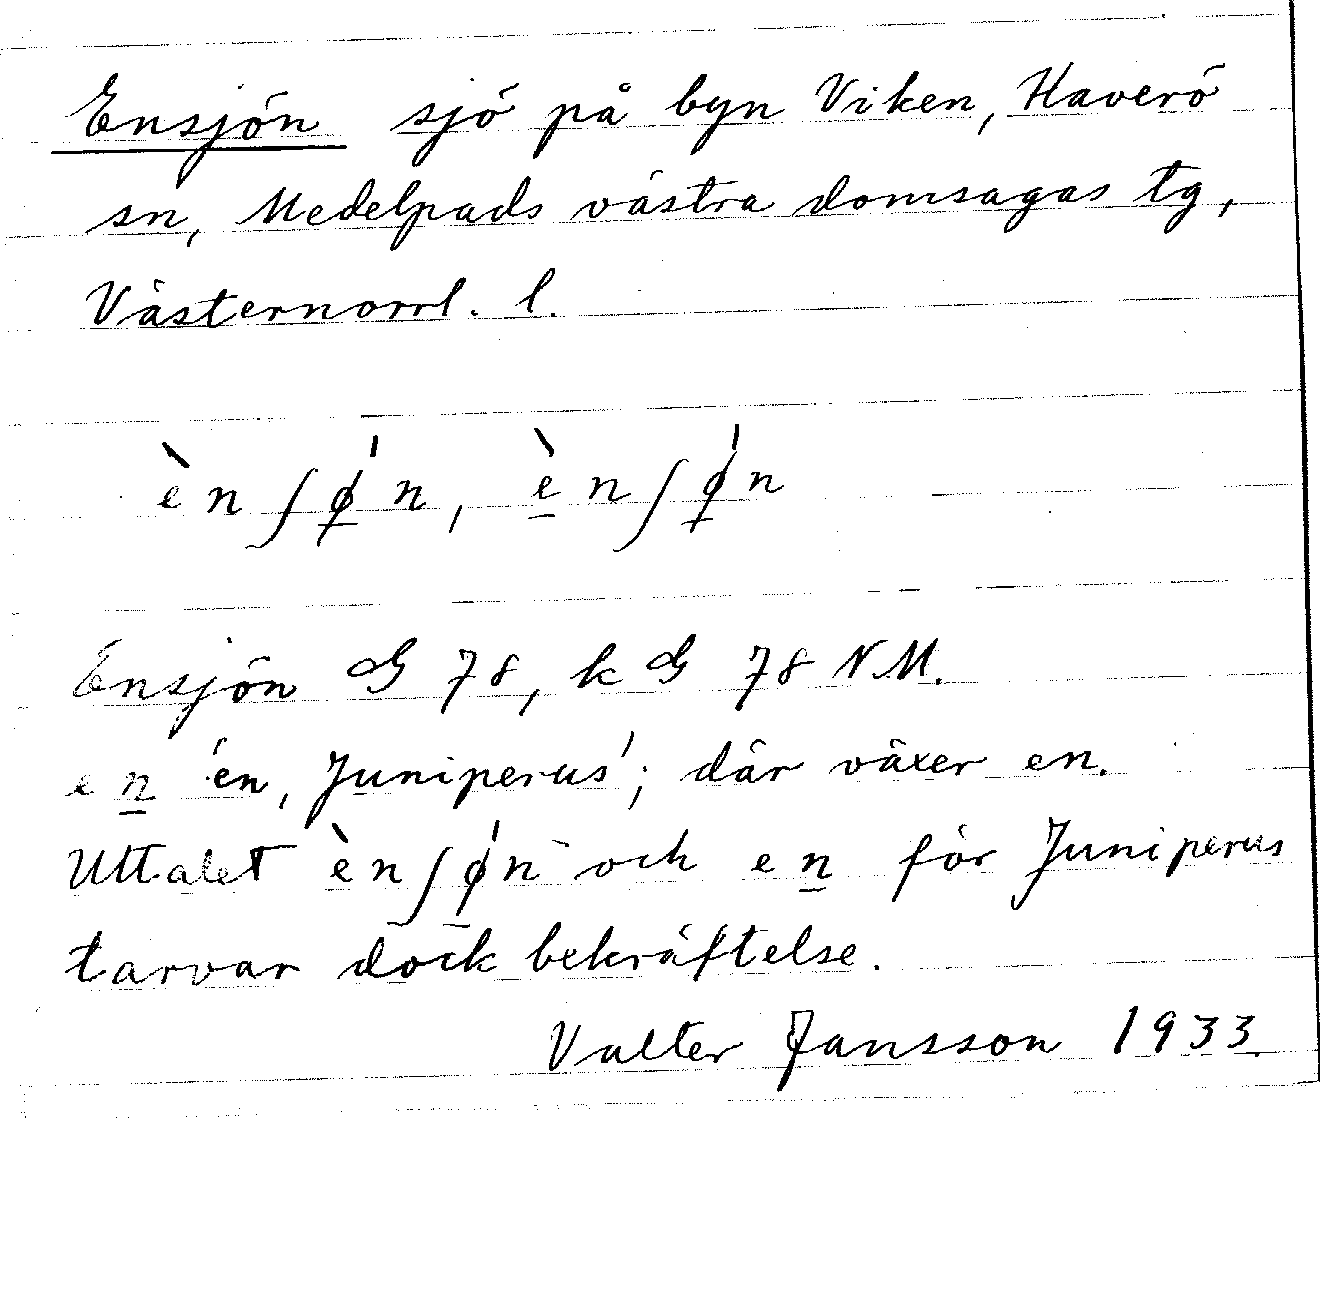 Ensjön sjö på byn Viken, Haverö
sn, Medelpads västra domsagas tg,
Västernorrl. l.
ènʃǿ̲n, è̲nʃǿ̲n
Ensjön G 78, k G 78 NM.
en̲ 'en, Juniperus'; där växer en.
Uttalet ènʃǿ̲n och en̲ för Juniperus
tarvar dock bekräftelse.
Valter Jansson 1933.